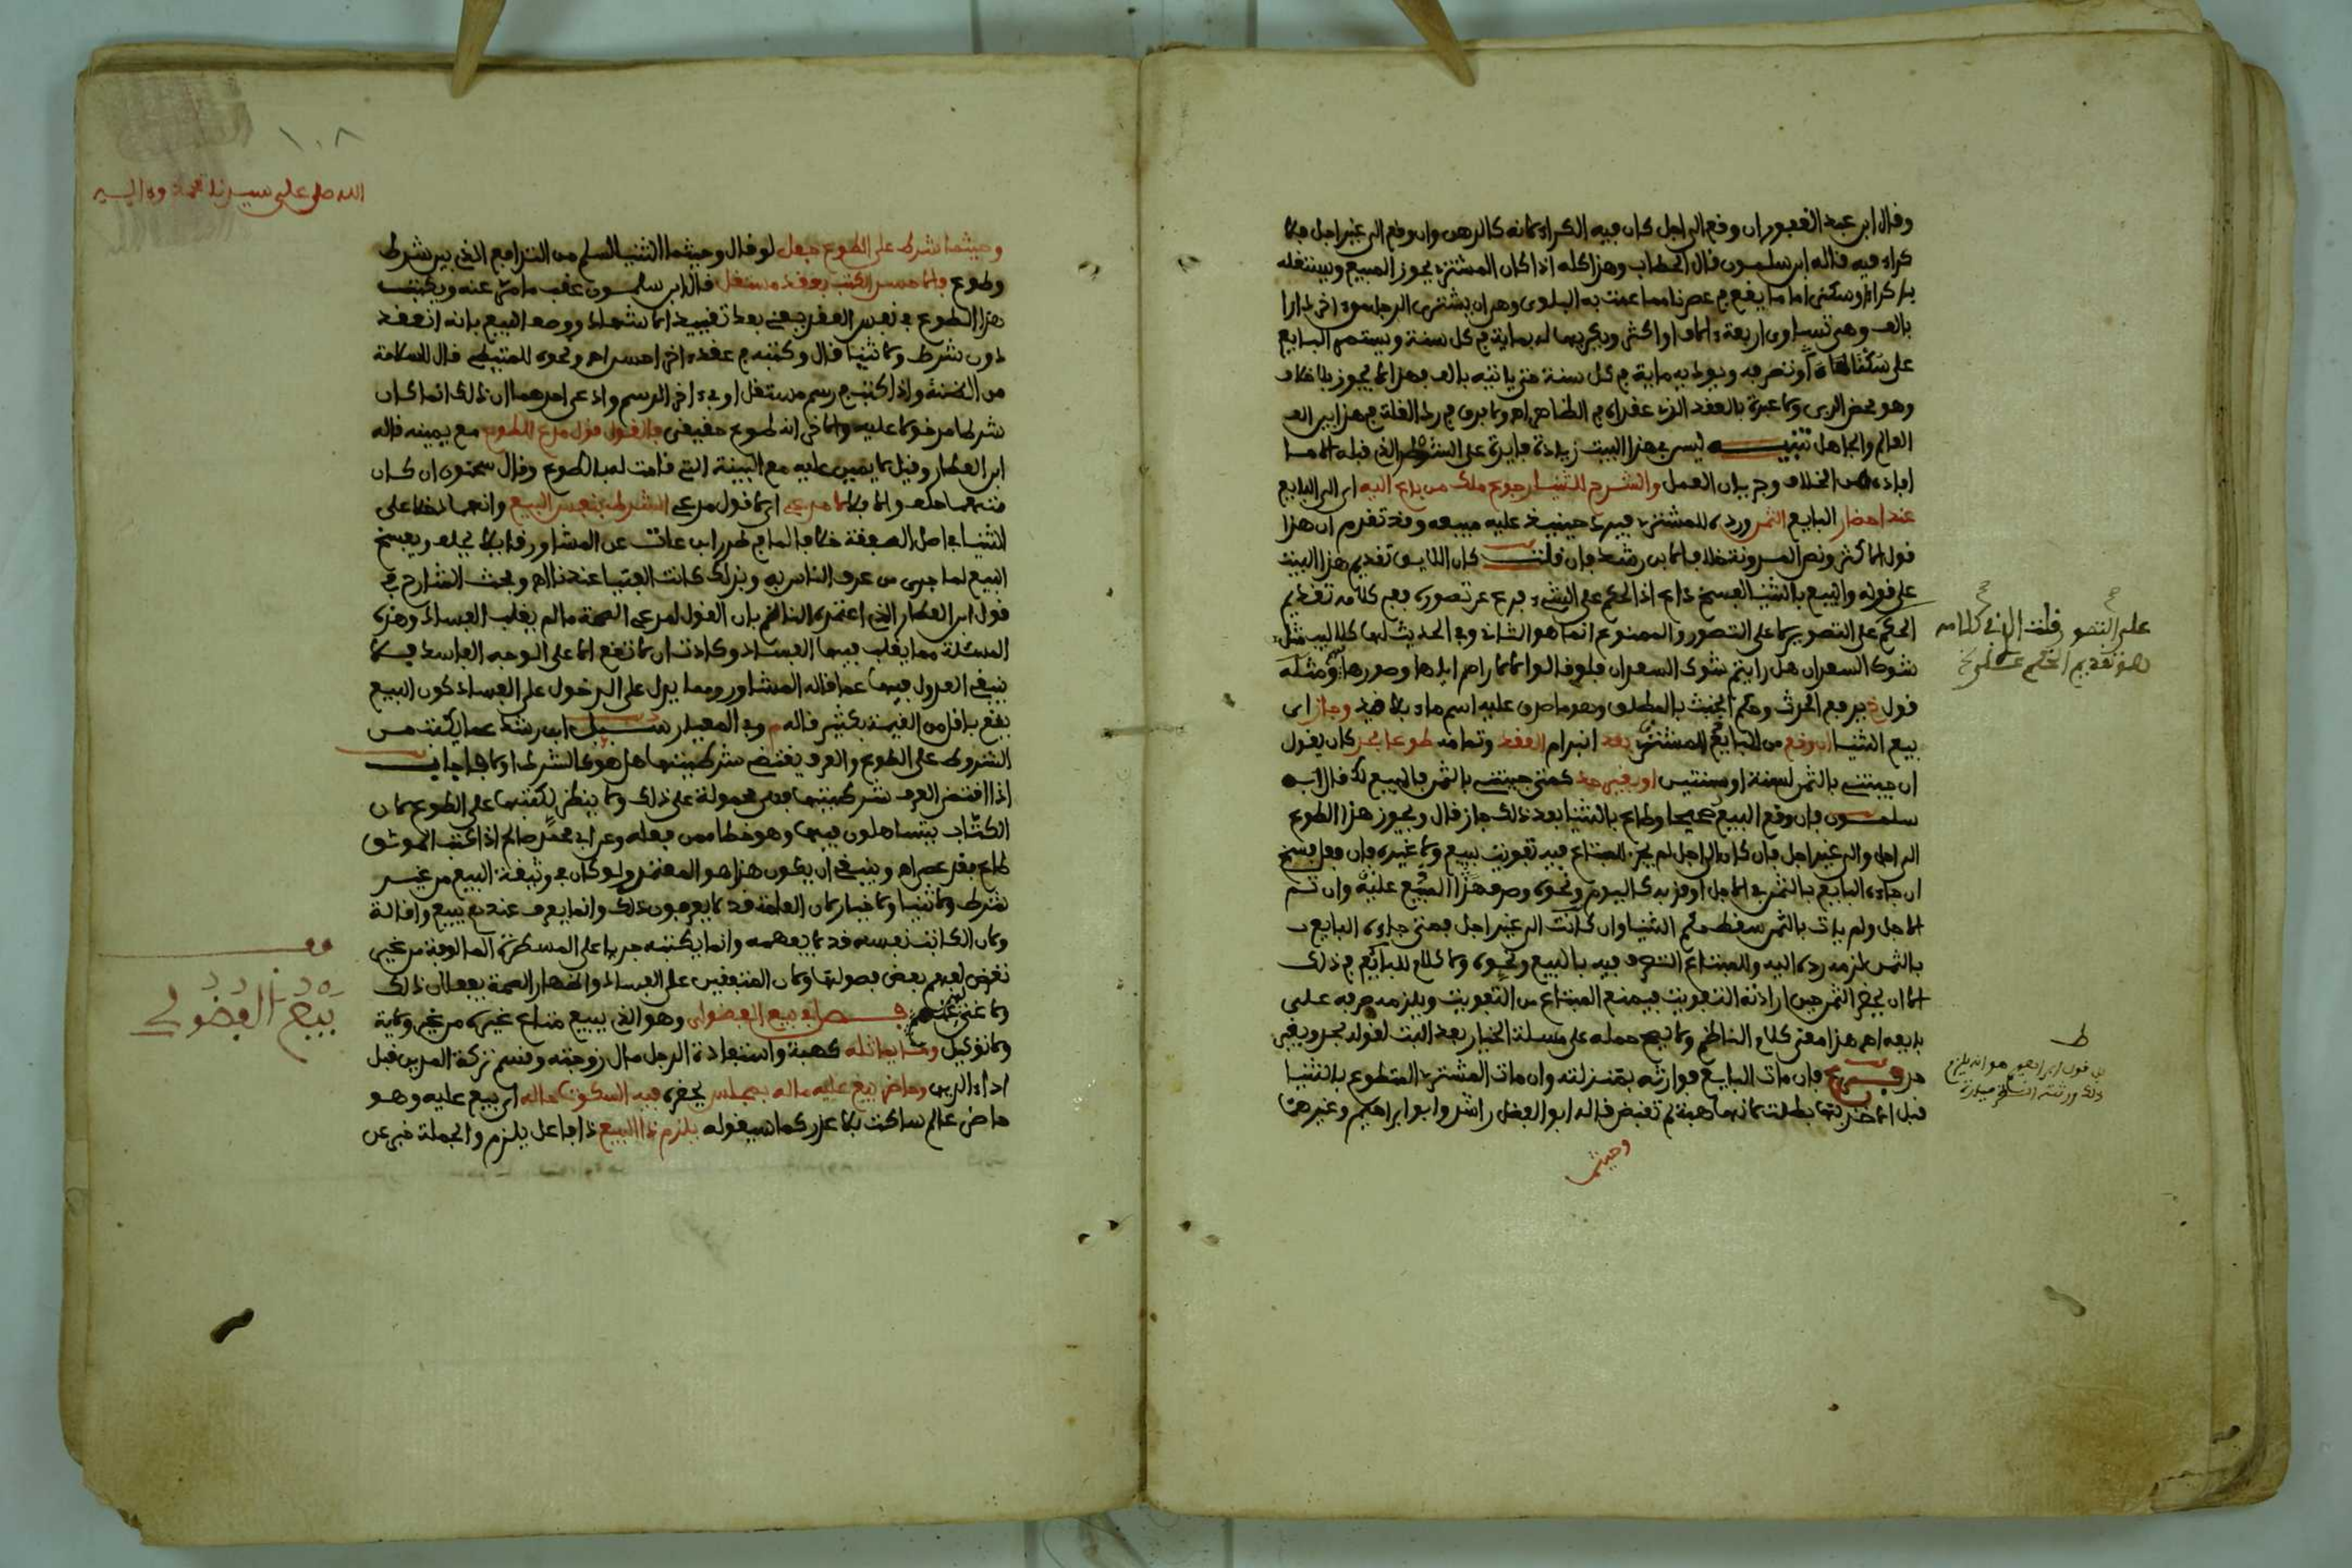 وقال ابن عبد الغفور ان وقع الى اجل كان فيه الكراء لانه كالرهن وان وقع الى غير اجل فلا
كراء فيه قاله ابن سلمون قال الحطاب وهذا كله اذا كان المشتري يحوز المبيع وينتفع به
بكراء او سكنى اما ما يقع في عصرنا مما عمت به البلوى وهو ان يشتري الرجل دارا
بالف وهي تساوي اربعة ءالاف او اكثر ويكريها له بماية في كل سنة ويستمر البايع
على سكناها او تنصرف ويودي ماية في كل سنة حتى ياتيه بالف فهذا لا يجوز بلا خلاف
وهو محض الربى ولا عبرة بالعقد الذي عقداه في الظاهر اه ولا فرق في رد الغلة في هذا بين
العالم والجاهل تنبيه ليس في هذا البيت زيادة فايدة على الشطر الذي قبله الا ما
افاده من الخلاف وجريان العمل والشرح للثنيا رجوع ملك من باع اليه اي الى البايع
عند احضار البايع الثمن ورده للمشتري فيرد حينيذ عليه مبيعه وقد تقدم ان هذا
قول الاكثر ونص المدونة خلافا لابن رشد فان قلت كان اللايق تقديم هذا البيت
على قوله والبيع بالثنيا لفسخ داع اذ الحكم على الشيء فرع عن تصوره ففي كلامه تقديم
الحكم على التصوير لا على التصور والممنوع انما هو الثاني وفي الحديث لها كلاليب مثل
شوك السعدان هل رايتم شوك السعدان
قول خ يرفع الحدث وحكم الخبث بالمطلق وهو ما صدق عليه اسم ماء بلا قيد وجاز اي
بيع الثنيا ان وقع من البايع للمشتري بعد انبرام العقد وتمامه طوعا بحد كان يقول
ان جيتني بالثمن لسنة او سنتين او بغير حد كمتى جيتني بالثمن فالمبيع لك قال ابن
سلمون فان وقع البيع صحيحا وطاع بالثنيا بعد ذلك جاز قال ويجوز هذا الطوع
الى اجل والى غير اجل فان كان الى اجل لم يجز للمبتاع فيه تفويت ببيع ولا غيره فان فعل فسخ
ان جاءه البايع بالثمن في الاجل او قرب ذلك اليوم ونحوه وصرف هذا المبيع عليه وان تم
الاجل ولم يات بالثمن سقط حكم الثنيا وان كانت الى غير اجل فمتى جاءه البايع
بالثمن لزمه رده اليه وللمبتاع التصرف فيه بالبيع ونحوه ولا كلام للبايع في ذلك
الا ان يحضر الثمن حين ارادته التفويت فيمنع المبتاع من التفويت ويلزمه صرفه على
بايعه اه هذا معنى كلام الناظم ولا يصح حمله على مسلة الخيار بعد البت لقوله بحد وبغير
حد فرع فان مات البايع فوارثه بمنزلته وان مات المشتري المتطوع بالثنيا
قبل الاخذ بها بطلت لانها هبة لم تقبض قاله ابو الفضل راشد وابو ابراهيم وغيرهما
وحيثما
على التصو
ط
الله صلى على سيدنا محمد وءاله
١٠٨
وحيثما شرط على الطوع جعل لو قال وحيثما الثنيا السلم من التدافع الذي بين شرط
وطوع فالاحسن الكتب بعقد مستقل قال ابن سلمون عقب ما مر عنه ويكتب
هذا الطوع في نفس العقد يعني بعد تقييد الاشهاد ووصف البيع بانه انعقد
دون شرط ولا ثنيا قال وكتبه في عقد ءاخر احسن اه ونحوه للمتيطي قال للسلامة
من الضنة واذا كتب في رسم مستقل او في ءاخر الرسم وادعى احدهما ان ذلك انما كان
شرطا مدخولا عليه والاخر انه طوع حقيقي فالقول قول مدع للطوع مع يمينه قاله
ابن العطار وقيل لا يمين عليه مع البينة التي قامت له بالطوع وقال سحنون ان كان
متهما حلف والا فلا لا مدعي اي لا قول مدعي الشرط بنفس البيع وانهما دخلا على
الثنيا في اصل الصفقة خلافا لما في طرر ابن عات عن المشاور قايلا يحلف ويفسخ
البيع لما جرى من عرف الناس به وبذلك كانت الفتيا عندنا اه وبحث الشارح في
قول ابن العطار الذي اعتمده الناظم بان القول لمدعي الصحة ما لم يغلب الفساد وهذه
المسئلة مما يغلب فيها الفساد وكادت ان لا تقع الا على الوجه الفاسد فلا
ينبغي العدول فيها عما قاله المشاور ومما يدل على الدخول على الفساد كون البيع
يقع باقل من القيمة بكثير قاله م وفي المعيار سيل ابن رشد عما يكتب من
الشروط على الطوع والعرف يقتضي شرطيتها هل هو كالشرط او لا فاجاب
اذا اقتضى العرف شرطيتها فهي محمولة على ذلك ولا ينظر لكتبها على الطوع لان
الكتاب يتساهلون فيها وهو خطا ممن فعله وعن ابي محمد صالح اذا كتب الموثق
طاع فقد عصى اه وينبغي ان يكون هذا هو المعتمد ولو كان في وثيقة البيع من غير
شرط ولا ثنيا ولا خيار لان العامة قد لا يعرفون ذلك وانما يعرف عندهم بيع واقالة
ولان الكاتب نفسه قد لا يفهمه وانما يكتبه جريا على المسطرة المالوفة من غير
تعرض لفهم بعض فصولها ولان المتفقين على الفساد واظهار الصحة يفعلان ذلك
فصل في بيع الفضولي وهو الذي يبيع متاع غيره من غير ولاية
ولا توكيل وما يماثله كهبة واستفادة الرجل مال زوجته وقسم تركة المدين قبل
اداء الدين وحاضر بيع عليه ماله بمجلس يحضره فيه السكوت حاله اي بيع عليه وهو
حاضر عالم ساكت بلا عذر كما سيقوله يلزم ذا البيع ذا فاعل يلزم والجملة خبر عن
قف
بيع الفضولي